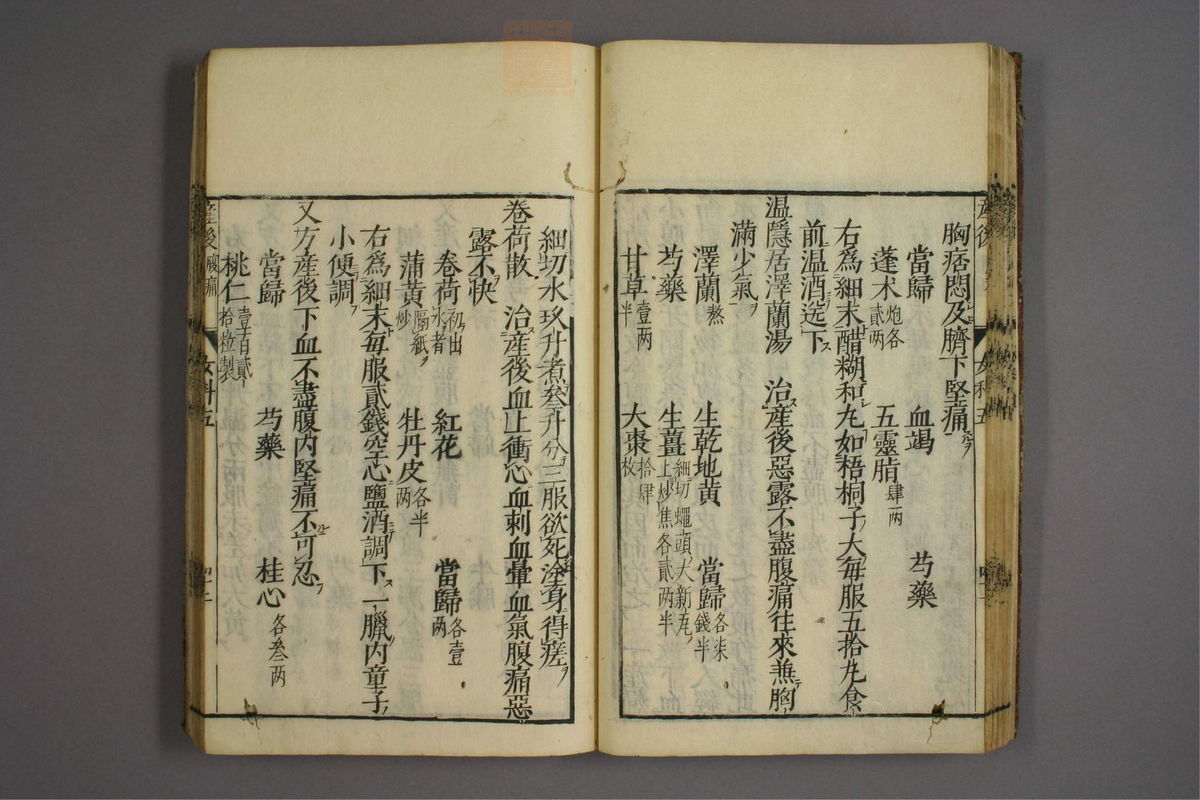 胸痞悶及臍下堅痛
當歸 血竭 芍藥
蓬朮炮各貳两 五靈脂肆两
右爲細末醋糊和丸如梧桐子大每服五拾丸食
前温酒送下
温隱居澤蘭湯 治産後惡露不盡腹痛往來兼胸
滿少氣
澤蘭熬 生乾地黄 當歸各柒錢半
芍藥 生薑細切蠅頭大新瓦上炒焦各貳两半
甘草壹两半 大棗拾肆枚
細切水玖升煮叄升分三服欲死塗身得瘥
卷荷散 治産後血上衝心血刺血暈血氣腹痛惡
露不快
卷荷初出水者 紅花 當歸各壹两
蒲黄隔紙炒 牡丹皮各半两
右爲細末每服貳錢空心鹽酒調下一臘内童子
小便調
又方産後下血不盡腹内堅痛不可忍
當歸 芍藥 桂心各叄两
桃仁壹百貳拾粒製
産後腹痛 女科五